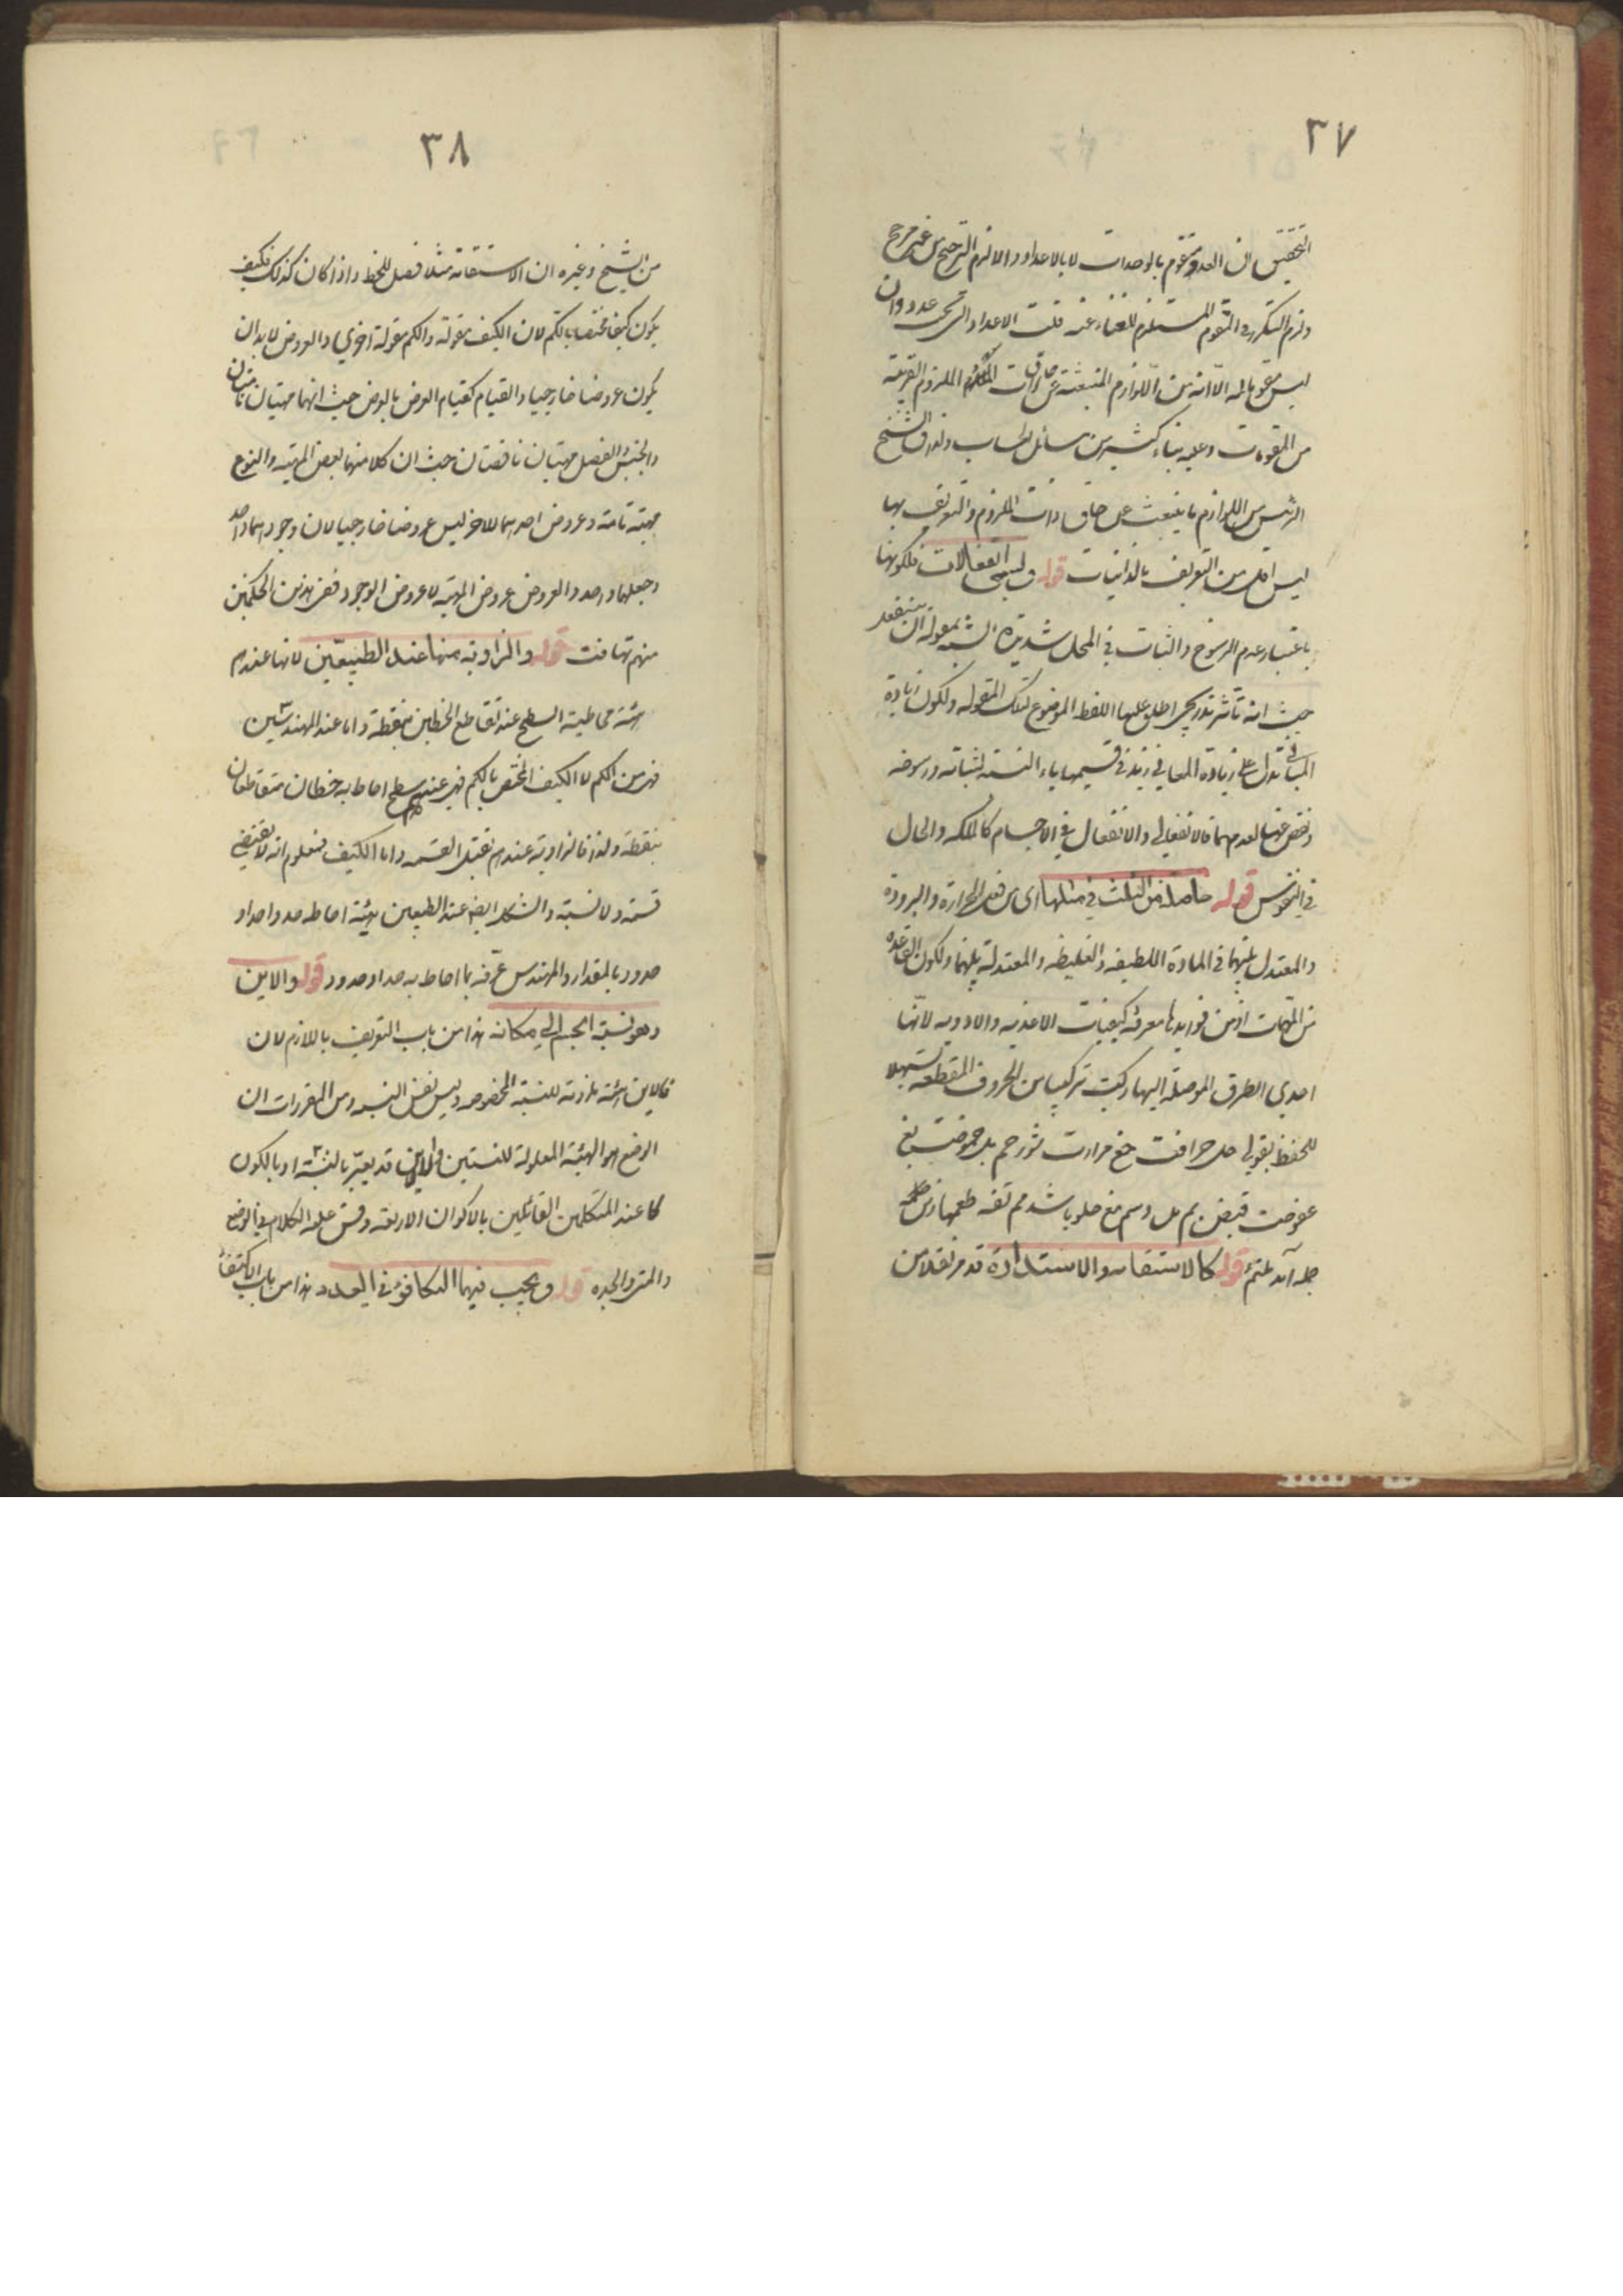 ٣٧
التحقيق ان العدد متقوم بالوحدات لا بالاعداد والا لزم الترجيح من غير مرجح
ولزم التكرر في التقوم المستلزم للغناء عنه قلت الاعداد التي تحت عدد وان
ليس مقوما له الا انه من اللوازم المنبعثة عن حاق ذات الملزوم القريبة
من المقومات وعليه بناء كثير من مسائل الحساب ولذا الشيخ
الرئيس من اللوازم ما ينبعث عن حاق ذات الملزوم والتعريف بها
ليس اقل من التعريف بالذاتيات قوله وليسم انفعالات فلكونها
باعتبار عدم الرسوخ والثبات في المحل شديدة الشبه بمقولة ان ينفعل
حيث انه تأثر تدريجي اطلق عليها اللفظ الموضوع لتلك المقولة ولكون زيادة
المباني تدل على زيادة المعاني زيد في قسيمها ياء النسبة لثباته ورسوخه
ونقص عنها لعدمهما فالانفعالي والانفعال في الاجسام كالملكة والحال
في النفوس قوله حاصلة من الثلث في مثلها اى من فعل الحرارة والبرودة
والمعتدل بينهما في المادة اللطيفة والغليظة والمعتدلة بينهما ولكون القاعدة
من المهمات اذ من فوايدها معرفة كيفيات الاغذية والادوية لانها
احدى الطرق الموصلة اليها ركبت تركيبا من الحروف المقطعة تسهيلا
للحفظ بقولي حل حرافت حغ مرارت شور حم بل حموضت بغ
عفوضت قبض بم مل دسم مغ حلو باشد مم تفه طعمها زين
جمله آمد ملتئم قوله كالاستقامة والاستدارة قد مر نقلا من
٣٨
من الشيخ وغيره ان الاستقامة مثلا فصل للخط واذا كان كذلك فكيف
يكون كيفا مختصا بالكم لان الكيف مقولة والكم مقولة اخرى والعروض لا بد ان
يكون عروضا خارجيا والقيام كقيام العرض بالعرض حيث انهما مهيتان تامتان
والجنس والفصل مهيتان ناقصتان حيث ان كلا منهما بعض المهية والنوع
مهية تامة وعروض احدهما للاخر ليس عروضا خارجيا لان وجودهما واحد
وجعلهما واحد والعروض عروض المهية لا عروض الوجود ففي هذين الحكمين
منهم تهافت قوله والزاوية منها عند الطبيعيين لانها عندهم
هيئة محاطية السطح عند تقاطع الخطين بنقطة واما عند المهندسين
فهي من الكم لا الكيف المختص بالكم فهي عندهم سطح احاط به خطان متقاطعان
بنقطة ولذا فالزاوية عندهم تقبل القسمة واما الكيف فمعلوم انه لا يقتضي
قسمة ولا نسبة والشكل ايضا عند الطبيعيين هيئة احاطة حد واحد او
حدود بالمقدار والمهندس عرفه بما احاط به حد او حدود قوله والاين
وهو نسبة الجسم الى مكانه هذا من باب التعريف باللازم لان
فالاين هيئة لازمة للنسبة المخصوصة وليس نفس النسبة ومن المقررات ان
الوضع هو الهيئة المعلولة للنسبتين والاين قد يعبر بالنسبة او بالكون
كما عند المتكلمين القائلين بالاكوان الاربعة وقس عليه الكلام في الوضع
والمتى والجدة قوله ويجب فيهما التكافؤ في العدد هذا من باب الاكتفاء